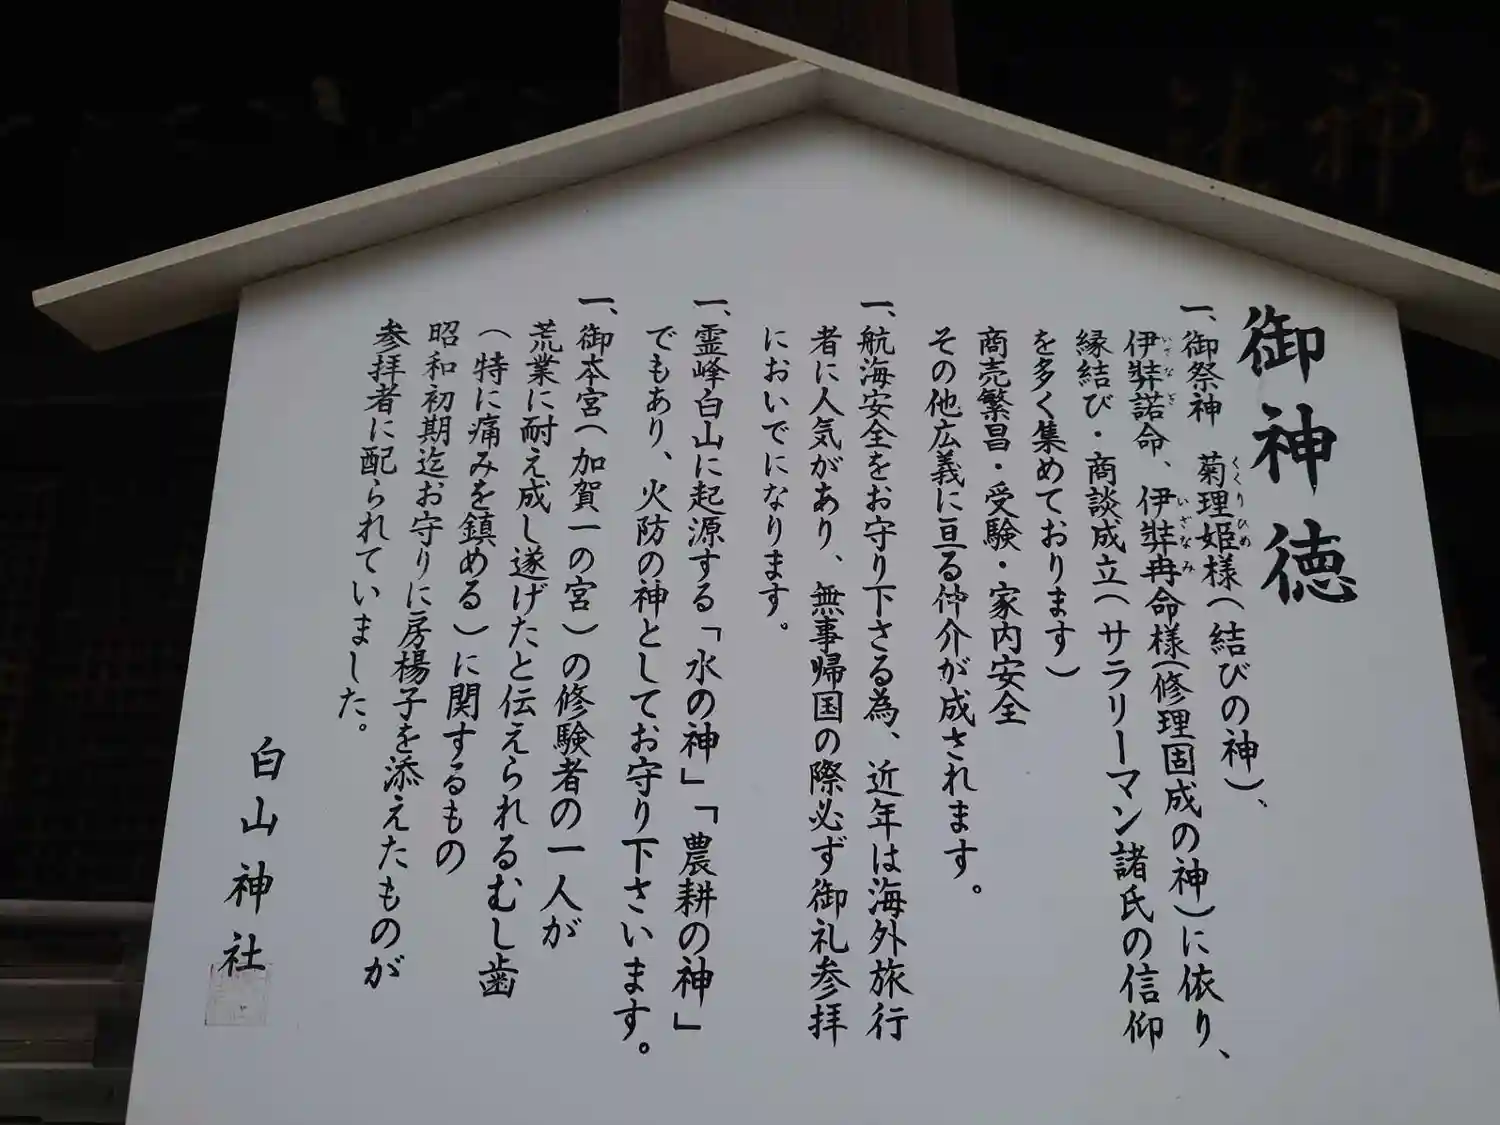 御神徳
一、御祭神　菊理姫様(結びの神)、
くくりひめ
伊弉諾命、伊弉冉命様(修理固成の神)に依り、
いざなぎ
いざなみ
縁結び・商談成立(サラリーマン諸氏の信仰
を多く集めております)
商売繁昌・受験・家内安全
その他広義に亘る仲介が成されます。
一、航海安全をお守り下さる為、近年は海外旅行
者に人気があり、無事帰国の際必ず御礼参拝
においでになります。
一、霊峰白山に起源する「水の神」「農耕の神」
でもあり、火防の神としてお守り下さいます。
一、御本宮(加賀一の宮)の修験者の一人が
荒業に耐え成し遂げたと伝えられるむし歯
(特に痛みを鎮める)に関するもの
昭和初期迄お守りに房楊子を添えたものが
参拝者に配られていました。
白山神社